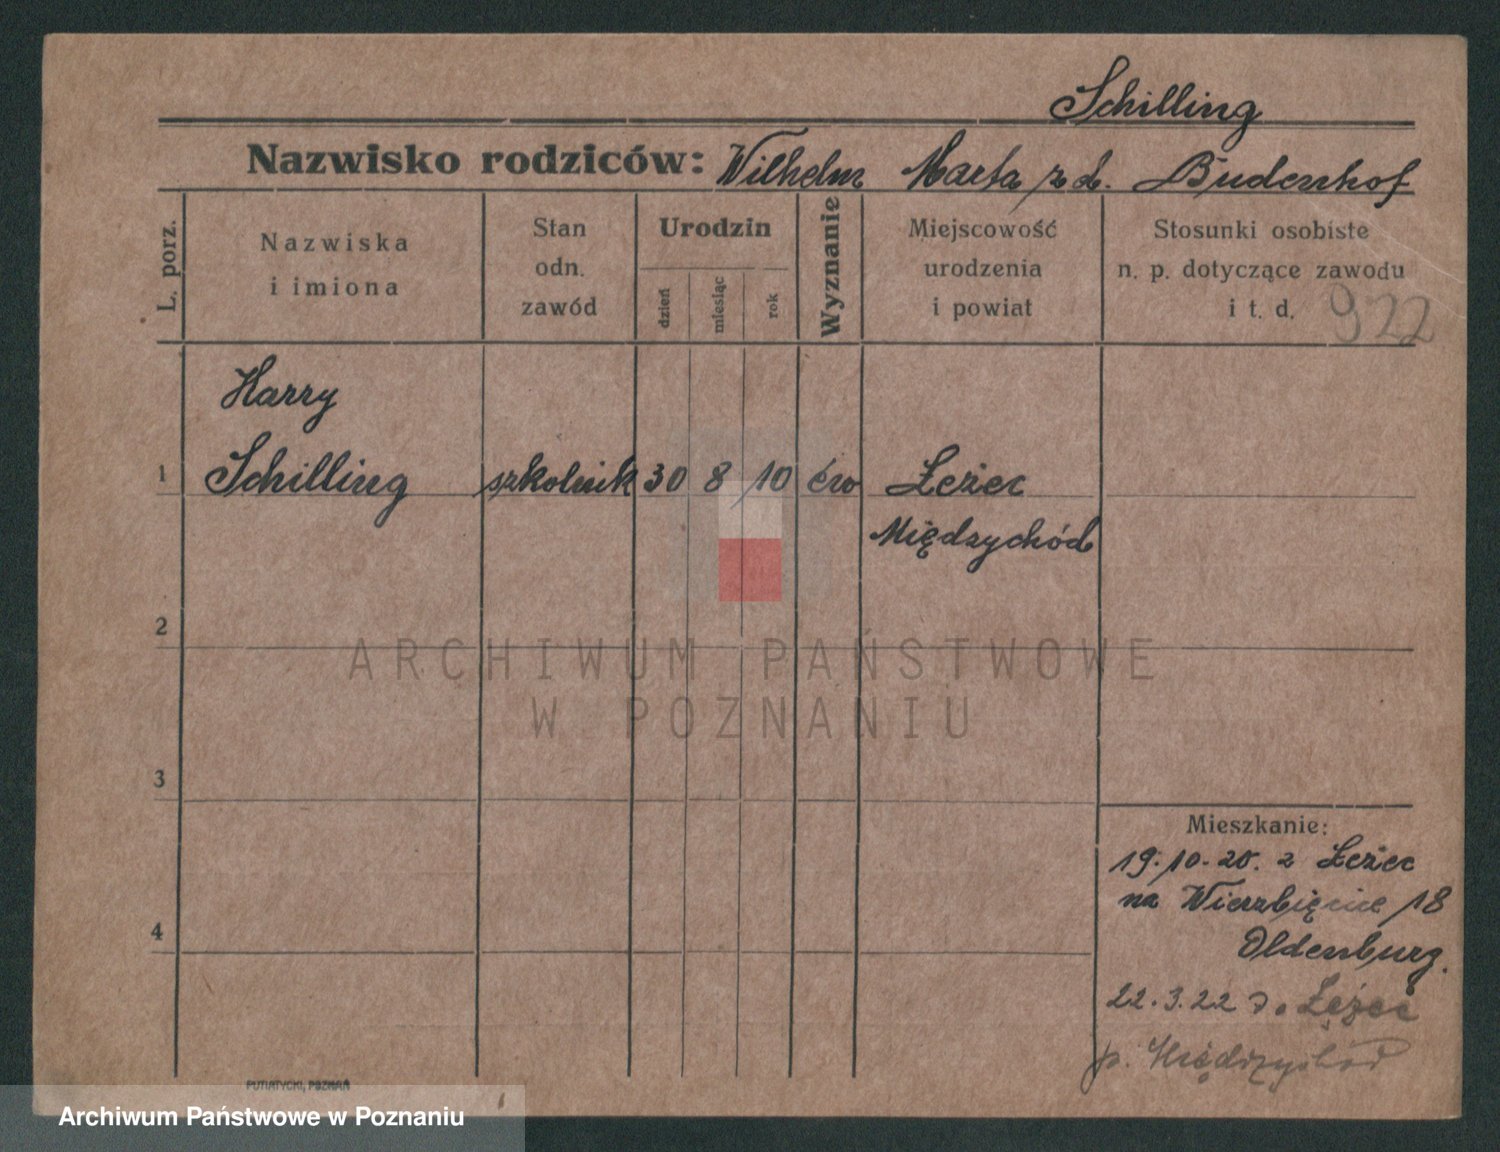 Schilling
Nazwisko rodziców: Wilhelm Marta z d. Budenhof
L. porz.
Nazwiska
i imiona
Stan
odn.
zawód
Urodzin
dzień
miesiąc
rok
Wyznanie
Miejscowość
urodzenia
i powiat
Stosunki osobiste
n. p. dotyczące zawodu
i t. d.
922
Harry
1 Schilling szkolnik 30 8 10 ew Łeżec
Międzychód
2
3
4
Mieszkanie:
19.10.20. z Łeżec
na Wierzbięcice 18
Oldenburg.
22.3.22 do Łeżec
p. Międzychód
PUTIATYCKI, POZNAŃ
ARCHIWUM PAŃSTWOWE
W POZNANIU
Archiwum Państwowe w Poznaniu